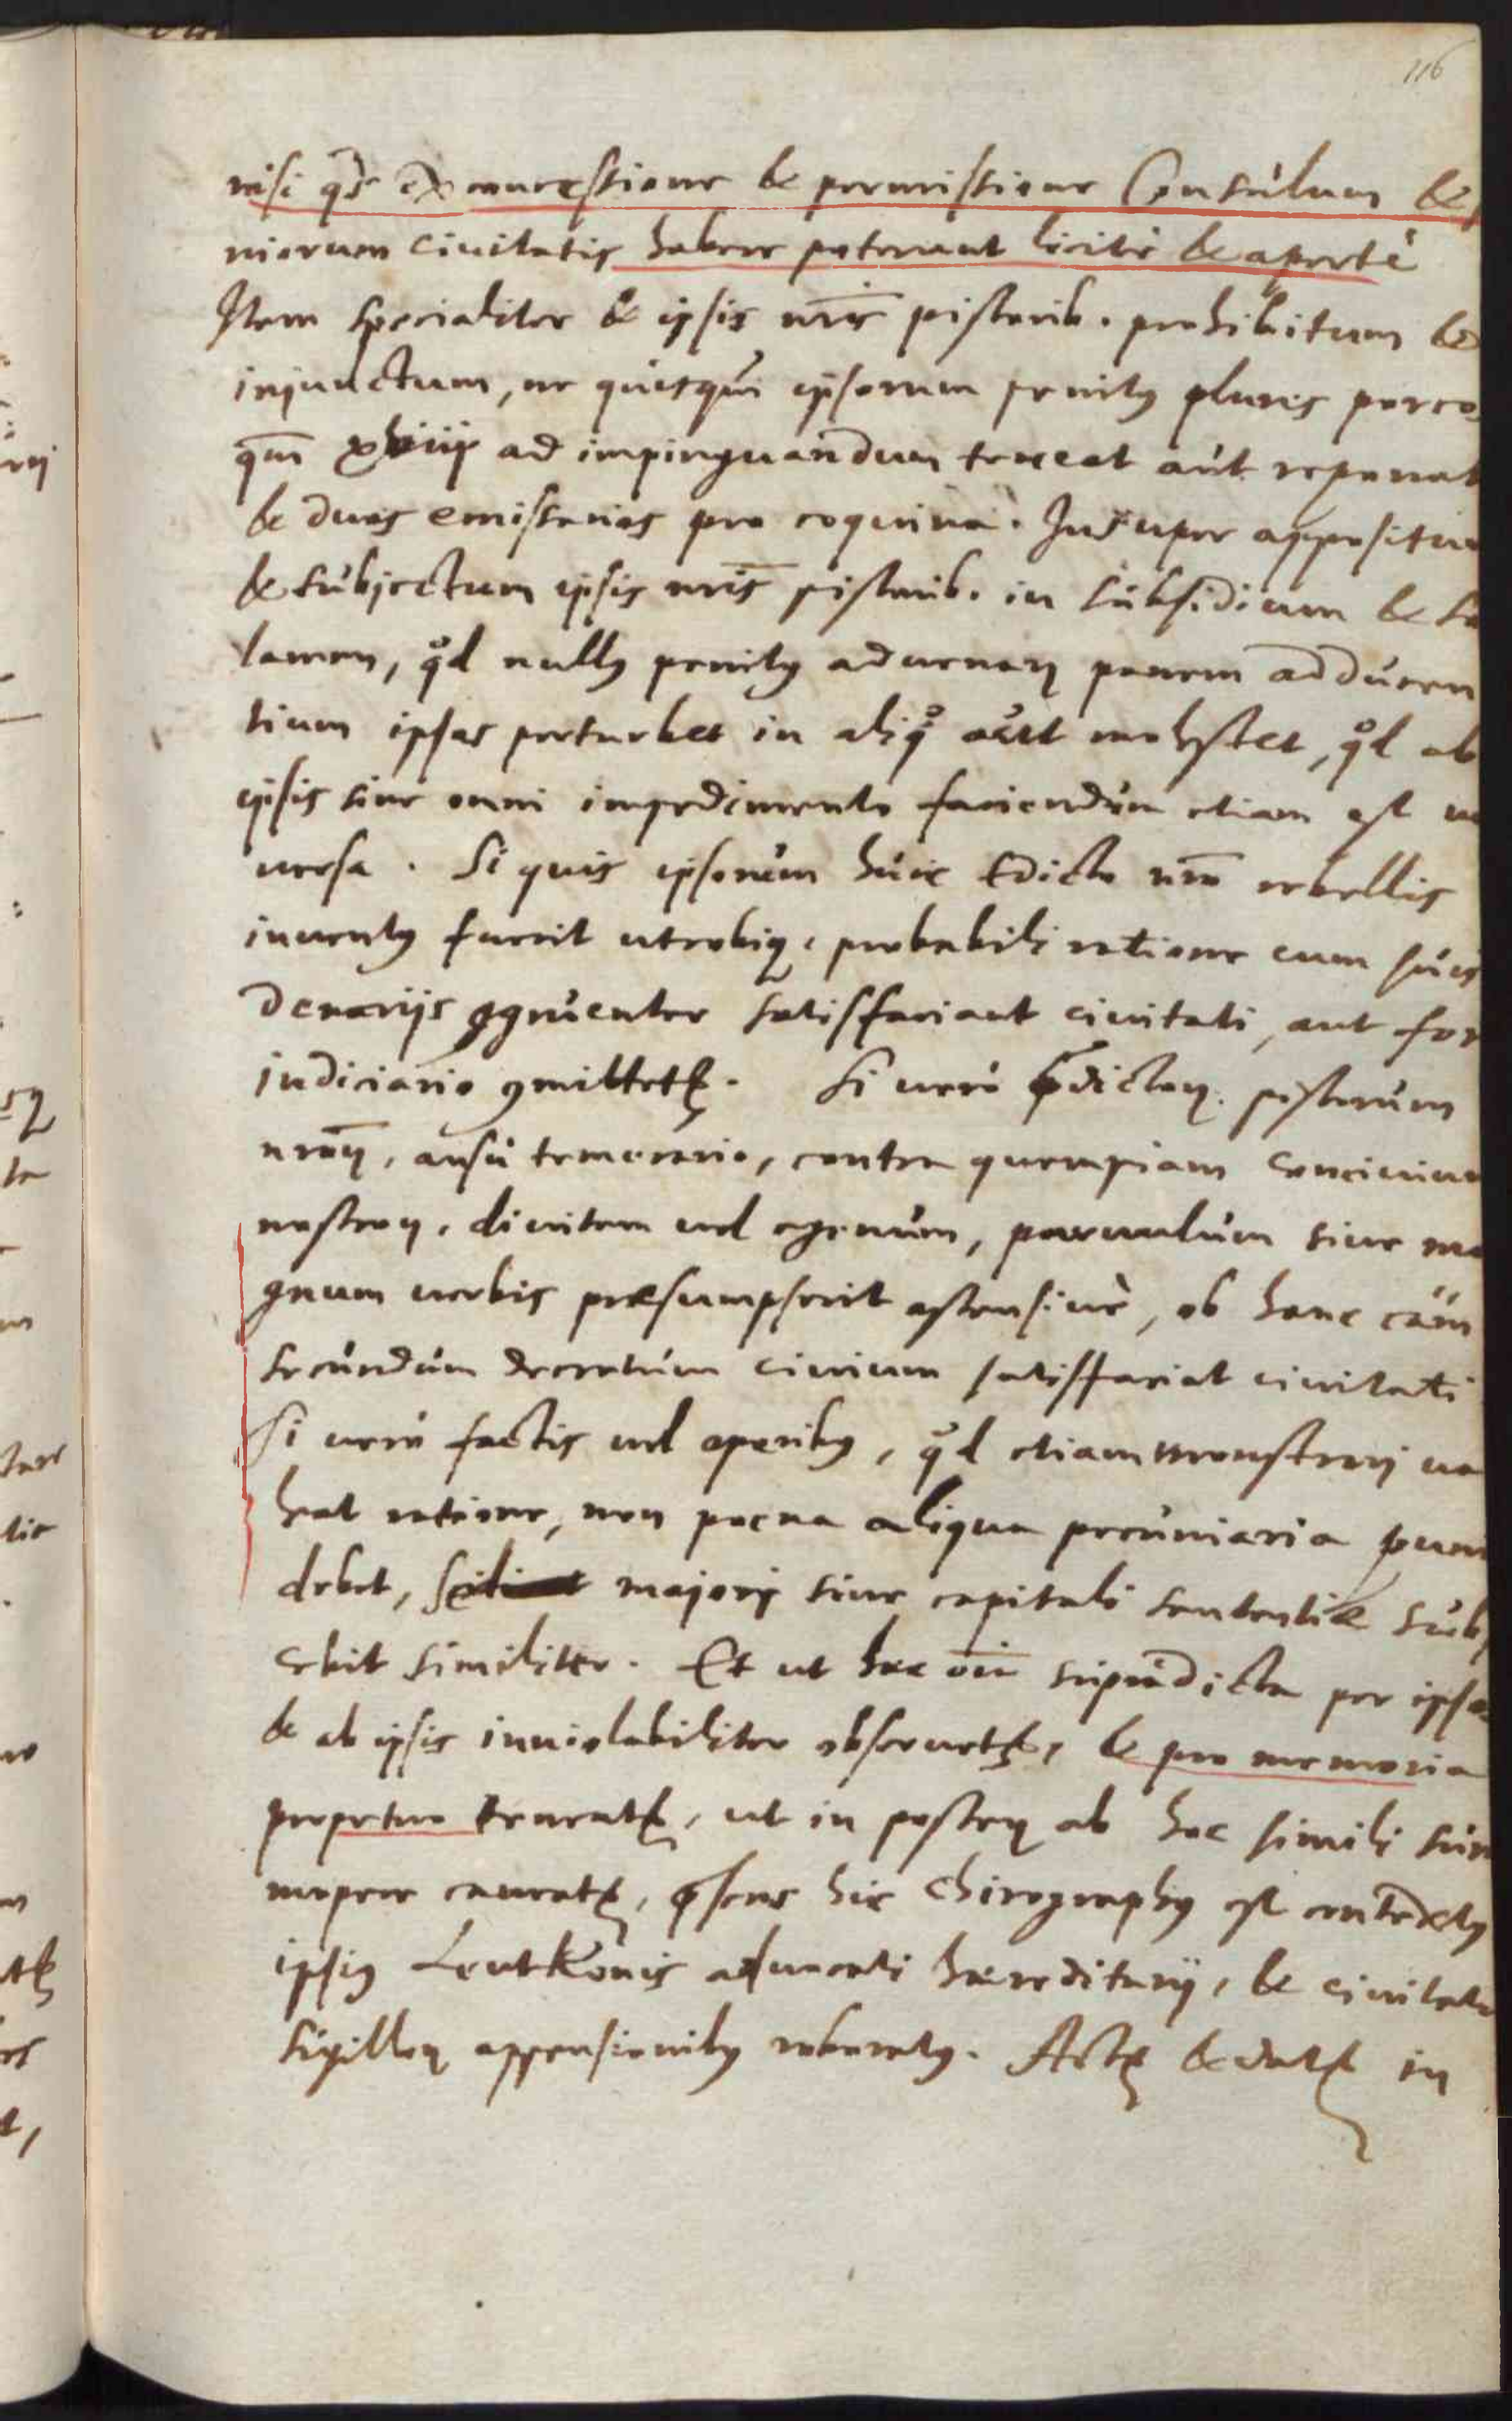 116
nisi qs ex concessione & permissione Consulum &
niorum ciuitatis habere poterunt licitè & apertè
Item specialiter & ipsis nris pistorib. prohibitum &
injunctum, ne quisqu ipsorum penitus plures porco
qm xviij ad impinguandum teneat aut reponat
& duos emissarios pro coquina. Insuper appositu
& subjectum ipsis nris pistorib. in subsidium & so
lamen, qd nullus penitus aduenarum panem adducen
tium ipsos perturbet in aliquo aut molestet, qd ab
ipsis sine omni impedimento faciendum etiam est
uersa. Si quis ipsorum huic Edicto nro rebellis
inuentus fuerit utrobiq. probabili ratione cum suis
denarijs congruenter satisffaciant ciuitati, aut for
judiciario committetur. Si uerò prædictorum pistorum
nrorum, ausu temerario, contra quempiam conciuium
nostrorum, diuitem uel egenum, paruulum siue ma
gnum uerbis præsumpserit ostensiuè, ob hanc cam
secundum decretum ciuium satisffaciat ciuitati
Si uerò factis uel operibus, qd etiam monstrari ua
leat ratione, non poena aliqua pecuniaria puni
debet, majori siue capitali sententiæ sub
cebit similiter. Et ut hæc oia supradicta per ipso
& ab ipsis inuiolabiliter obseruetur, & pro memoria
perpetuo teneatur, ut in posterum ab hoc simili sum
mopere caueatur, præsens hic Chirographus est contextus
ipsius Leutkonis aduocati hæreditarij, & ciuitatis
sigillorum appensionibus roboratus. Actum & datum in